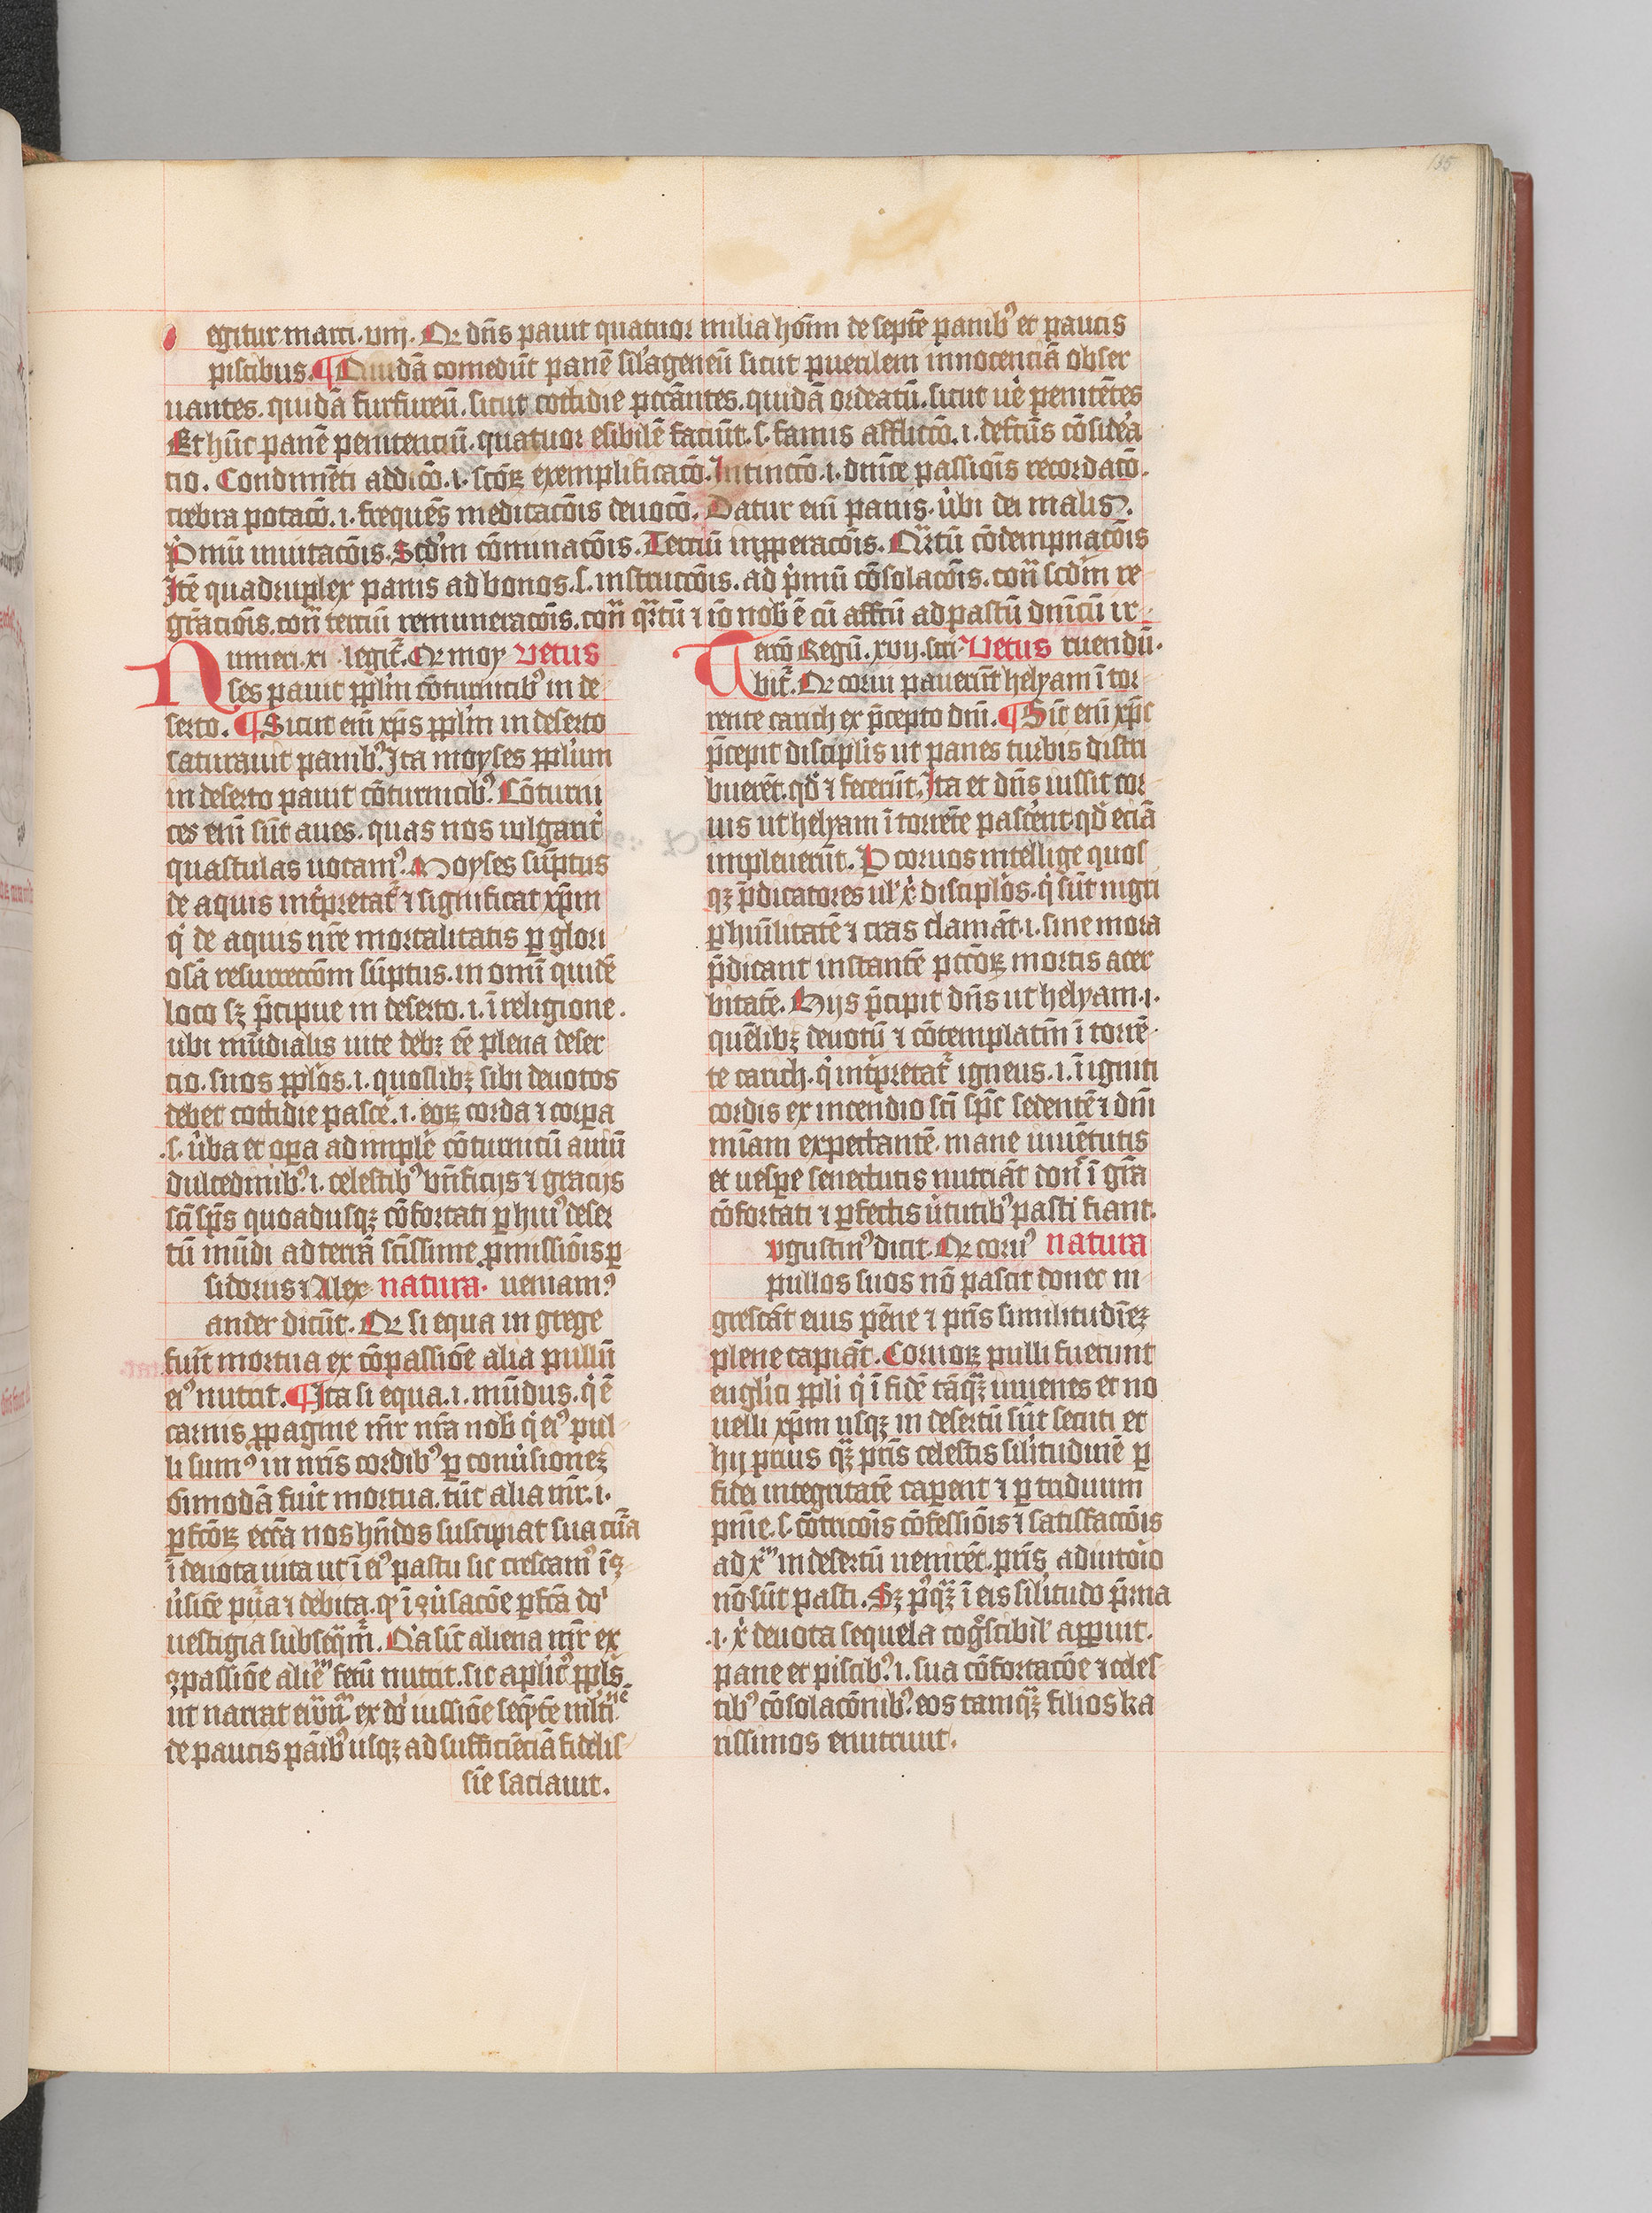 135
egitur marci. viij. Qr dn̄s pauit quatuor milia hoīm de septē panib⁹ et paucis
piscibus. ¶ Quidā comedūt panē sil'agineū sicut puerilem innocenciā obser
uantes. quidā furfureū. sicut cottidie pccātes. quidā ordeatū. sicut ue᾽ penitētes
Et hūc panē penitenciū. quatuor esibilē faciūt. s. famis afflictō. i. defctūs cōsid'a
tio. Condimēti addicō. i. scōꝝ exemplificacō. Intinctō. i. dnīce passiōis recordacō.
crebra potacō. i. frequēs meditacōis deuocō. Datur eni panis. ubi dei malis.
P̓mū inuitacōis. Scd'm cōminacōis. Terciū inpperacōis. Qꝛtū cōdempnacōis
Itē quadruplex panis ad bonos. s. instruccōis. ad p̓mū cōsolacōis. con̄ scdm re
grāciōis. con̄ terciū remuneracōis. con̄ qꝛtū ⁊ iō nob̄ ē cū affctū ad pastū dnīcū ir
Numeri. xi. legit᷑. Qr moy vetus
ses pauit ppl'm cōturnicib⁹ in de
serto. ¶ Sicut eni xp̄s ppl'm in deserto
saturauit panib⁹. Ita moyses ppl'um
in deserto pauit cōturnicib⁹. Cōturni
ces eni sūt aues. quas nos wlgarit᾽
quastulas uocam⁹. Moyses sūptus
de aquis int᾽pretat᷑ ⁊ significat xp̄m
q̓ de aquis nr̄e mortalitatis ꝑ glori
osā resurrectōm sūptus. in omī quidē
loco sꝫ p̄cipue in deserto. i. ī religione.
ubi mūdialis uite debꝫ eē plena deser
cio. suos ppl'os. i. quoslibꝫ sibi deuotos
debet cottidie pasce᾽. i. eoꝝ corda ⁊ corꝑa
.s. ūba et oꝑa adimple᾽ cōturnicū auiū
dulcedinib⁹. i. celestib⁹ bn̄ficijs ⁊ gracijs
sc̄i sp̄s quoadusqꝫ cōfortati ꝑ hui⁹ deser
tū mūdi ad terrā sc̄issime ꝓmissiōis ꝑ
sidorus ⁊ Alex natura. ueniam⁹
ander dicūt. Qr si equa in grege
fuit mortua ex cōpassiōe alia pullū
ei⁹ nutrit. ¶ Ita si equa. i. mūdus. q̓ ē
carnis ppagine mr̄ nr̄a nob̄ q̓ ei⁹ pul
li sum⁹ in nr̄is cordib⁹ ꝑ conūsionez
ōimodā fuit mortua. tūc alia mr̄. i.
ꝑfctōꝝ eccā nos hn̄dos suscipiat sua cūa
ī deuota uita ut ī ei⁹ pastu sic crescam⁹
uestigia subseqm᷑. Qa sic aliena mr̄ ex
ꝯpassiōe fetū nutrit. sic
de paucis panib⁹ usqꝫ ad sufficiēciā fidelis
sie saciauit.
Tercō Regū. xvij. sc̓i. Vetus tuendū.
bit᷑. Qr corui pauerūt helyam ī tor
rente carich ex p̄cepto dnī. ¶ Sic eni xp̄c
p̄cepit discipl'is ut panes turbis distri
buerēt. qd' ⁊ fecerūt. Ita et dn̄s iussit cor
uis ut helyam ī torrēte pascerēt qd' eciā
impleuerūt. P coruos intellige quos
qꝫ p̄dicatores ul' x᾽ discipl'os. q̓ sūt nigri
ꝑ huīlitatē ⁊ cras clamāt. i. sine mora
p̄dicant instantē pccōꝝ mortis acer
bitatē. Hijs p̄cipit dn̄s ut helyam. i.
quēlibꝫ deuotū ⁊ cōtemplatīm ī torrē
te carich. q̓ int᾽pretat᷑ igneus. i. ī igniti
cordis ex incendio sc̄i sp̄c sedentē ⁊ dnī
miam expectantē. mane iuuētutis
et uespe senectutis nutriāt don᾽ ī gr̄a
cōfortati ⁊ ꝑfectis ūtutib⁹ pasti fiant.
vgustin⁹ dicit. Qr coru⁹ natura
pullos suos nō pascit donec ni
grescāt eius pēne ⁊ pr̄is similitudīeꝫ
plene capiāt. Coruoꝝ pulli fuerunt
euglici ppli q̓ ī fide tāqꝫ iuuenes et no
uelli xp̄m usqꝫ in desertū sūt secuti et
hij prius qꝫ pr̄is celestis sil'itudinē ꝑ
fidei integritatē caꝑent ⁊ ꝑ triduum
pnīe. s. cōtricōis cōfessiōis ⁊ satisfaccōis
ad xᵐ in desertū uenirēt. pr̄is adiutoīo
nō sūt pasti. Sꝫ p⁹qꝫ ī eis sil'itudo pr̄na
.i. x᾽ deuota sequela cog̊scibil' appuit.
pane et piscib⁹. i. sua cōfortacōe ⁊ celes
tib⁹ cōsolacōnib⁹. eos tamqꝫ filios ka
rissimos enutriuit.